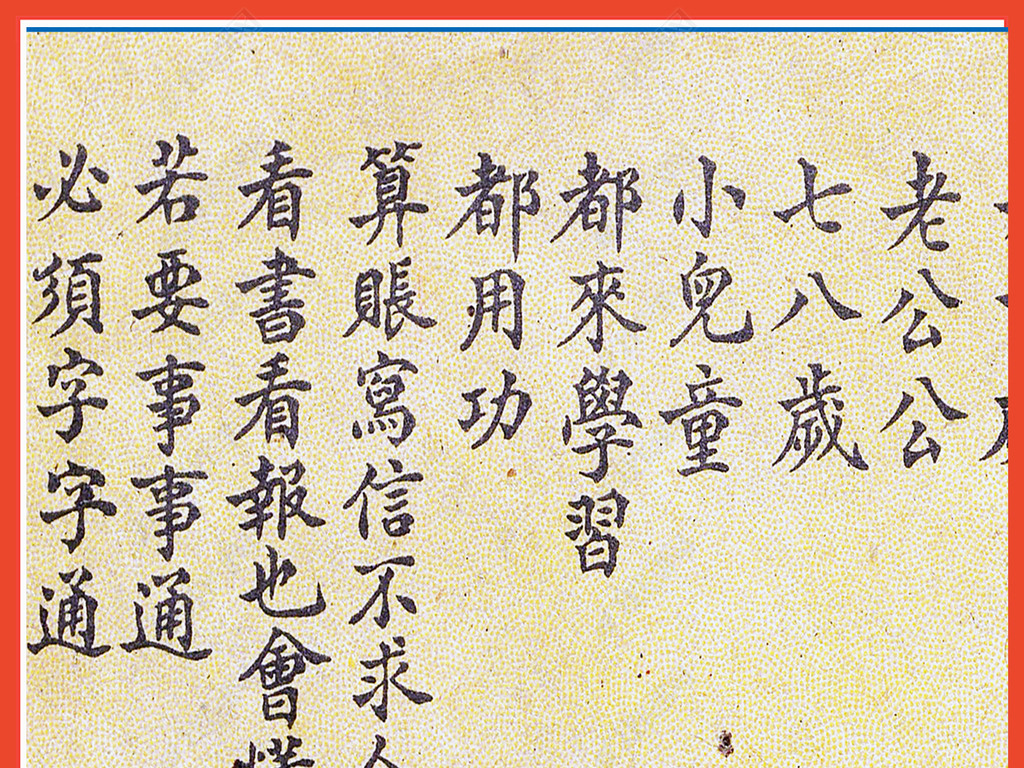 老公公
七八歲
小兒童
都來學習
都用功
算賬寫信不求人
看書看報也會
若要事事通
必須字字通